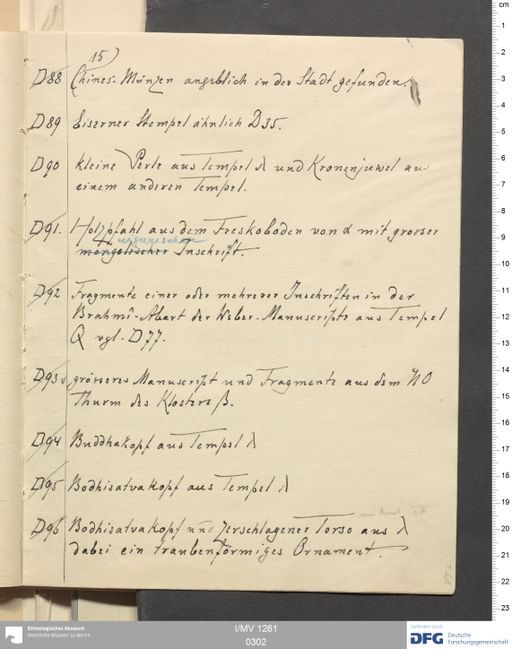 15)
D88 Chines. Münzen angeblich in der Stadt gefunden.
D89 Eiserner Stempel ähnlich D35.
D90 kleine Perle aus Tempel λ und Kronenjuwel aus
einem anderen Tempel.
D91. Holzpfahl aus dem Freskoboden von α mit grosser
uigurischen
mongolischer Inschrift.
D92 Fragmente einer oder mehrerer Inschriften in der
Brahmî-Abart der Weber-Manuscripte aus Tempel
Q vgl. D77.
D93 grösseres Manuscript und Fragmente aus dem NO
Thurm des Klosters β.
D94 Buddhakopf aus Tempel λ
D95 Bodhisatvakopf aus Tempel λ
D96 Bodhisatvakopf und zerschlagener Torso aus λ
dabei ein traubenförmiges Ornament.
cm
1
2
3
4
5
6
7
8
9
10
11
12
13
14
15
16
17
18
19
20
21
22
23
Ethnologisches Museum
Staatliche Museen zu Berlin
I/MV 1261
0302
Gefördert durch
DFG Deutsche
Forschungsgemeinschaft